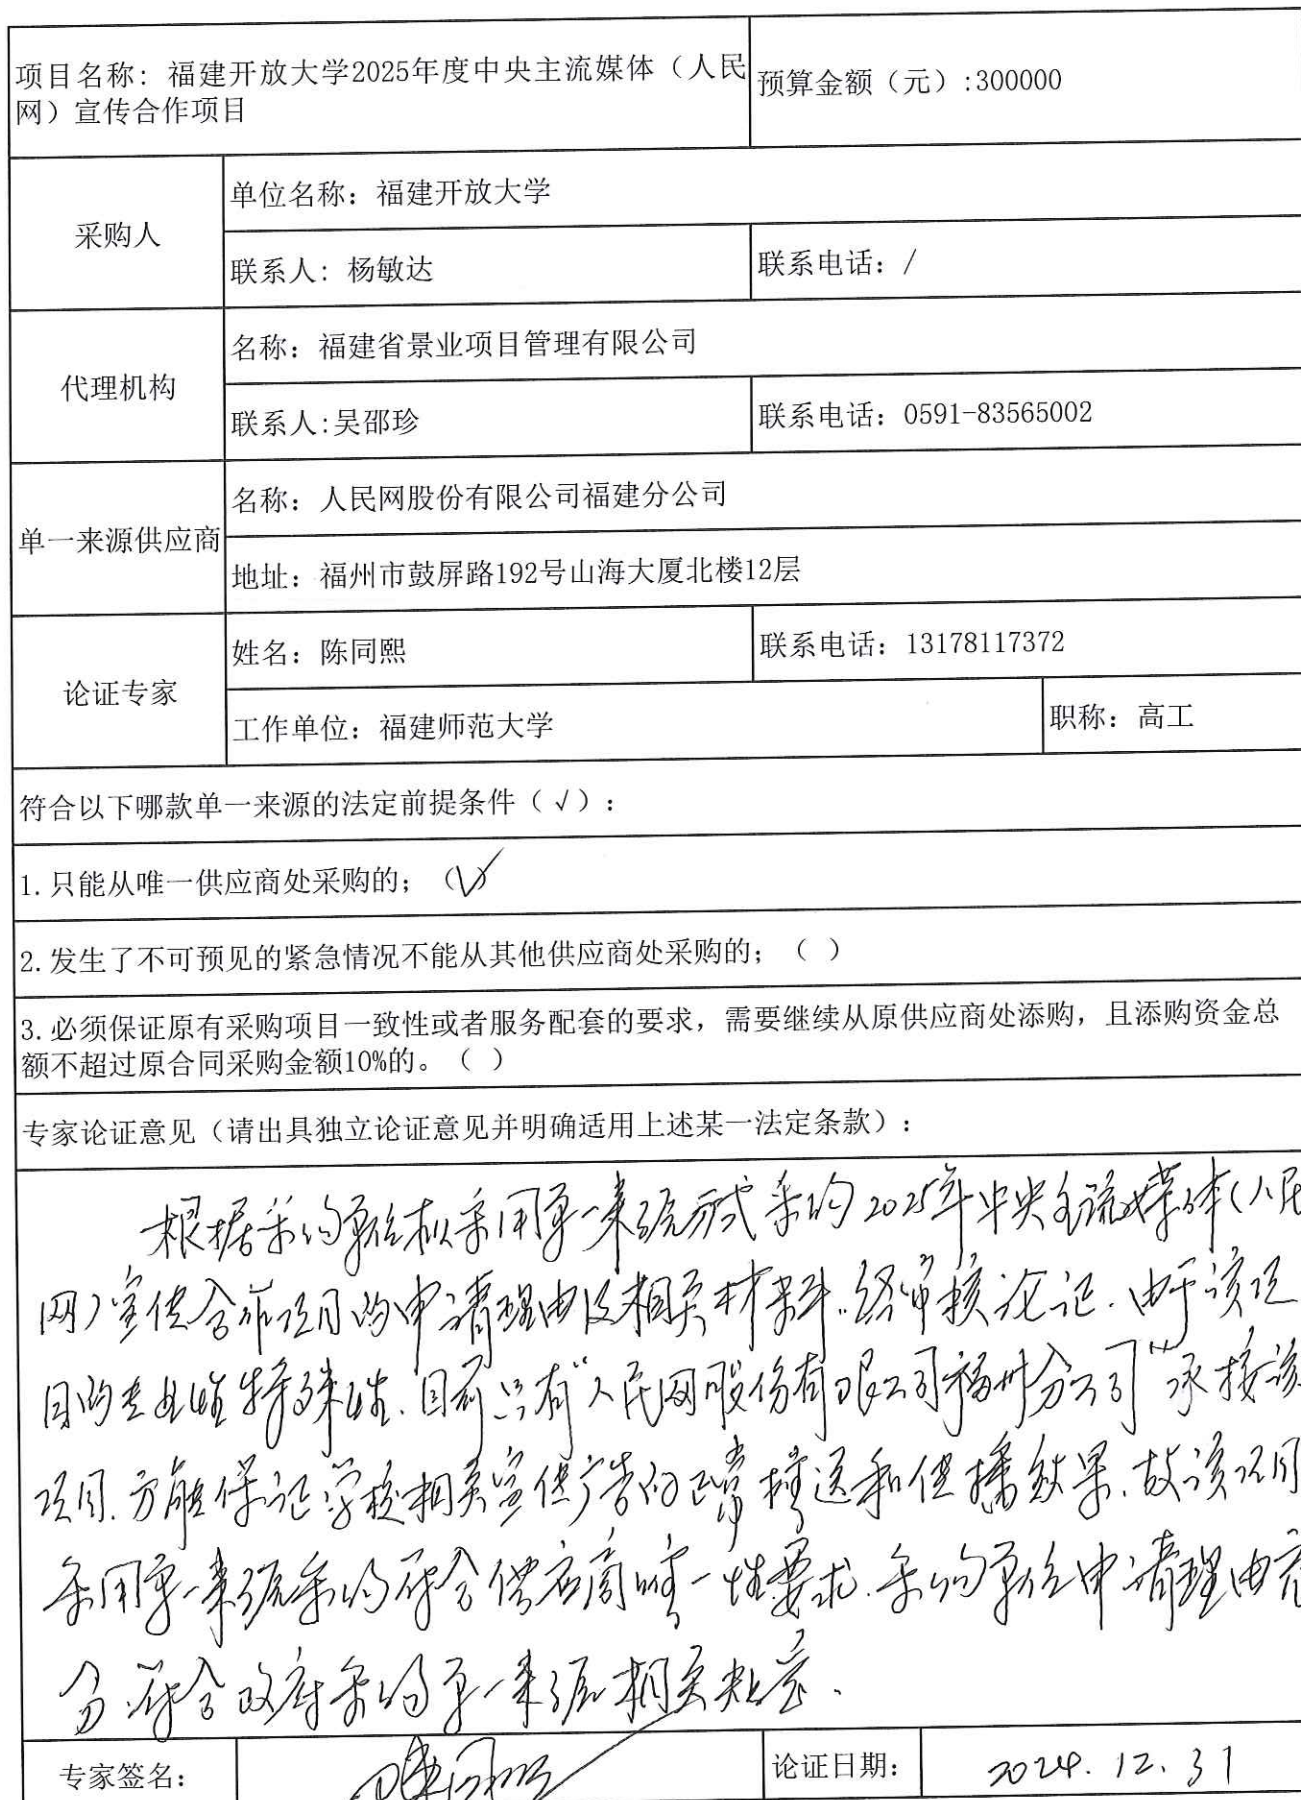 项目名称：福建开放大学2025年度中央主流媒体（人民
网）宣传合作项目
预算金额（元）:300000
采购人
单位名称：福建开放大学
联系人：杨敏达
联系电话：/
代理机构
名称：福建省景业项目管理有限公司
联系人:吴邵珍
联系电话：0591-83565002
单一来源供应商
名称：人民网股份有限公司福建分公司
地址：福州市鼓屏路192号山海大厦北楼12层
论证专家
姓名：陈同熙
联系电话：13178117372
工作单位：福建师范大学
职称：高工
符合以下哪款单一来源的法定前提条件（√）：
1.只能从唯一供应商处采购的；（√）
2.发生了不可预见的紧急情况不能从其他供应商处采购的；（ ）
3.必须保证原有采购项目一致性或者服务配套的要求，需要继续从原供应商处添购，且添购资金总
额不超过原合同采购金额10%的。（ ）
专家论证意见（请出具独立论证意见并明确适用上述某一法定条款）：
根据采购单位拟采用单一来源方式采购2025年中央主流媒体（人民
网）宣传合作项目的申请理由及相关材料，经审核论证，由于该项
目的专业性特殊性，目前只有“人民网股份有限公司福州分公司”承接该
项目，方能保证学校相关宣传广告的正常推送和传播效果，故该项目
采用单一来源采购符合供应商唯一性要求，采购单位申请理由充
分，符合政府采购单一来源相关规定。
专家签名：
陈同熙
论证日期：
2024.12.31